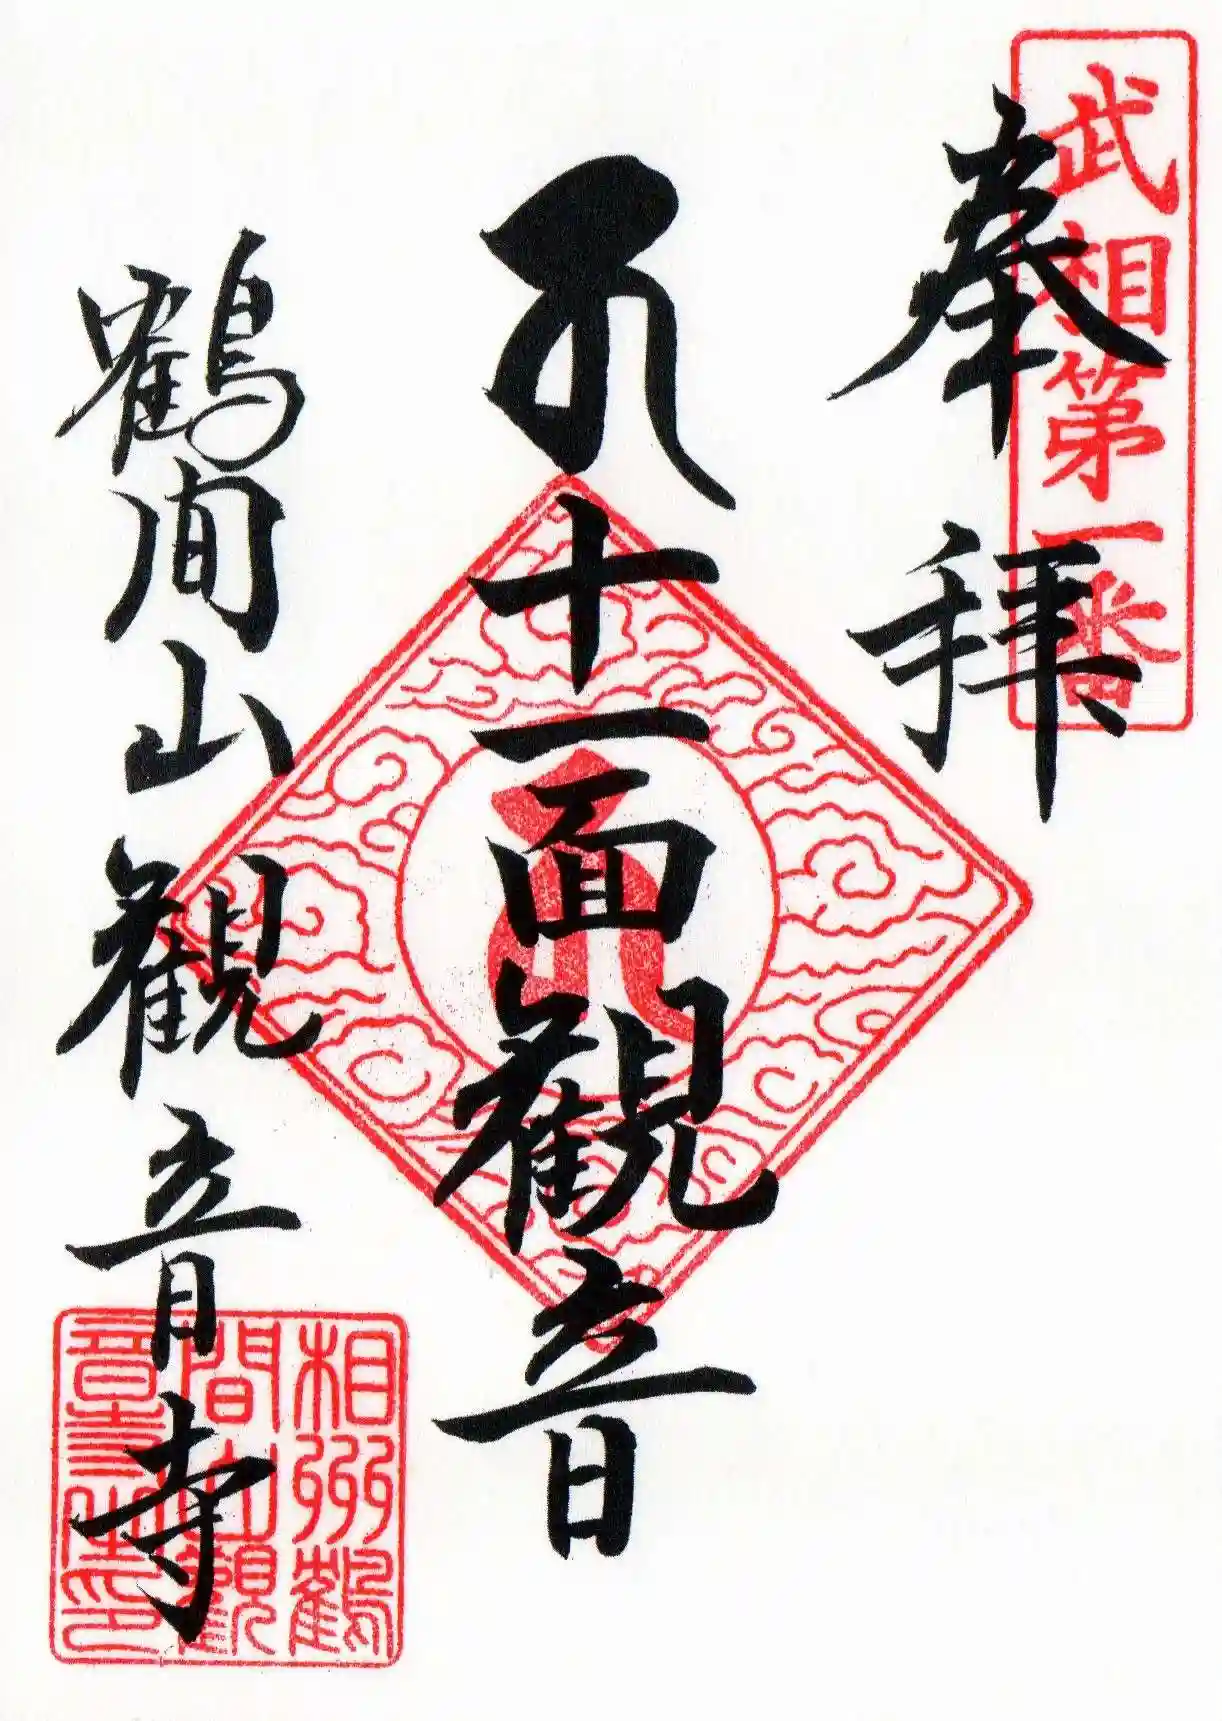 武相第一番
奉拝
十一面観音
鶴間山観音寺
相州鶴
間山観
音寺印